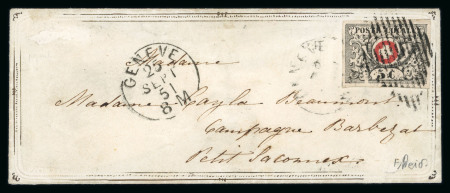 POSTE LOCALE
5 C
GENEVE
25
SEPT
51
8 M
Madame
Madame Cayla Beaumont
Campagne Barbezat
Petit Saconnex